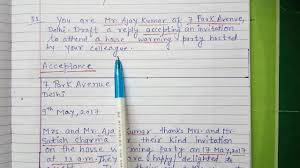 You are Mr. Ajay Kumar of 7 Park Avenue,
Delhi. Draft a reply accepting an invitation
to attend a house warming party hosted
by your colleague.
Acceptance
7, Park Avenue
Delhi
9th May, 2017
Mrs and Mr. Aj Kumar thanks Mrs. and Mr.
Satish Sharma for their kind invitation
on the house warming party on 17 May, 2017
at 11 a.m. They are happy delighted to